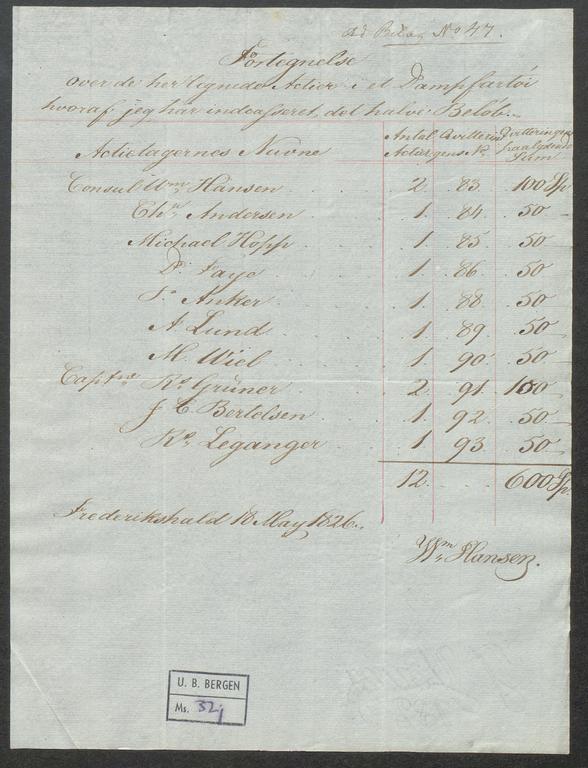 Ad Bilag No 47.
Fortegnelse
over de her tegnede Actier i et Dampfartöi
hvoraf jeg har indcasseret det halve Belöb.
Actietagernes Navne Antal Actier Qvitteringens No Qvitteringens Sum
Consul Wm Hansen 2 83 100 Sp
Chr Andersen 1 84 50
Michael Hopp 1 85 50
D. Faye 1 86 50
Anker 1 88 50
A Lund 1 89 50
M. Wiel 1 90 50
Capt Grüner 2 91 100
J C Bertelsen 1 92 50
Leganger 1 93 50
12 600 Sp
Frederikshald 18 May 1826.
Wm Hansen.
U. B. BERGEN
Ms. 32j